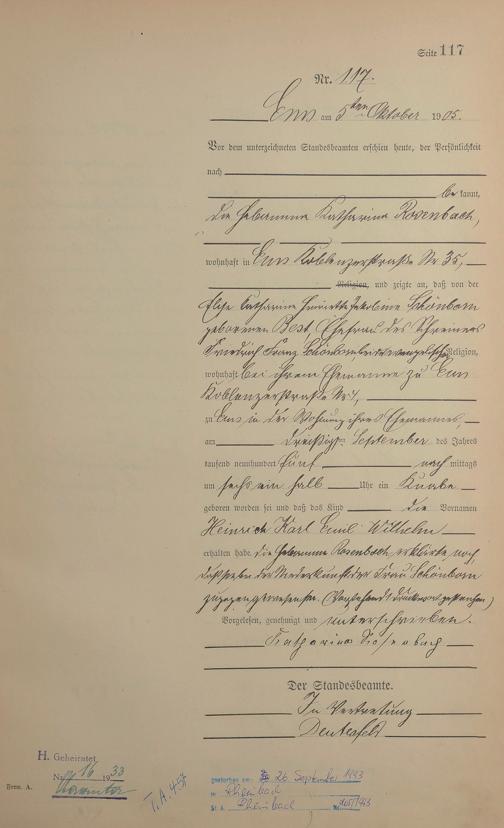 Seite 117
Nr. 117.
Ems am 5ten Oktober 1905.
Vor dem unterzeichneten Standesbeamten erschien heute, der Persönlichkeit
nach
bekannt,
die Hebamme Katharina Rosenbach,
wohnhaft in Ems Koblenzerstraße Nr 35,
Religion, und zeigte an, daß von der
Elise Katharina Henriette Jakobine Schönborn
geborenen Best, Ehefrau des Schreiners
Friedrich Franz Schönborn, beide evangelischer Religion,
wohnhaft bei ihrem Ehemanne zu Ems
Koblenzerstraße Nr
zu Ems in der Wohnung ihres Ehemannes,
am dreißigsten September des Jahres
tausend neunhundert fünf nach mittags
um sechs ein halb Uhr ein Knabe
geboren worden sei und daß das Kind die Vornamen
Heinrich Karl Emil Wilhelm
erhalten habe. die Hebamme Rosenbach erklärte noch,
daß sie bei der Niederkunft der Frau Schönborn
zugegen gewesen sei. (Vorstehend 1 Druckwort gestrichen)
Vorgelesen, genehmigt und unterschrieben.
Katharina Rosenbach
Der Standesbeamte.
In Vertretung
H. Geheiratet
Nr. 16 1933
Form. A.
gestorben am: 26. September 1993
in Rheinbach
St. A. Rheinbach Nr.